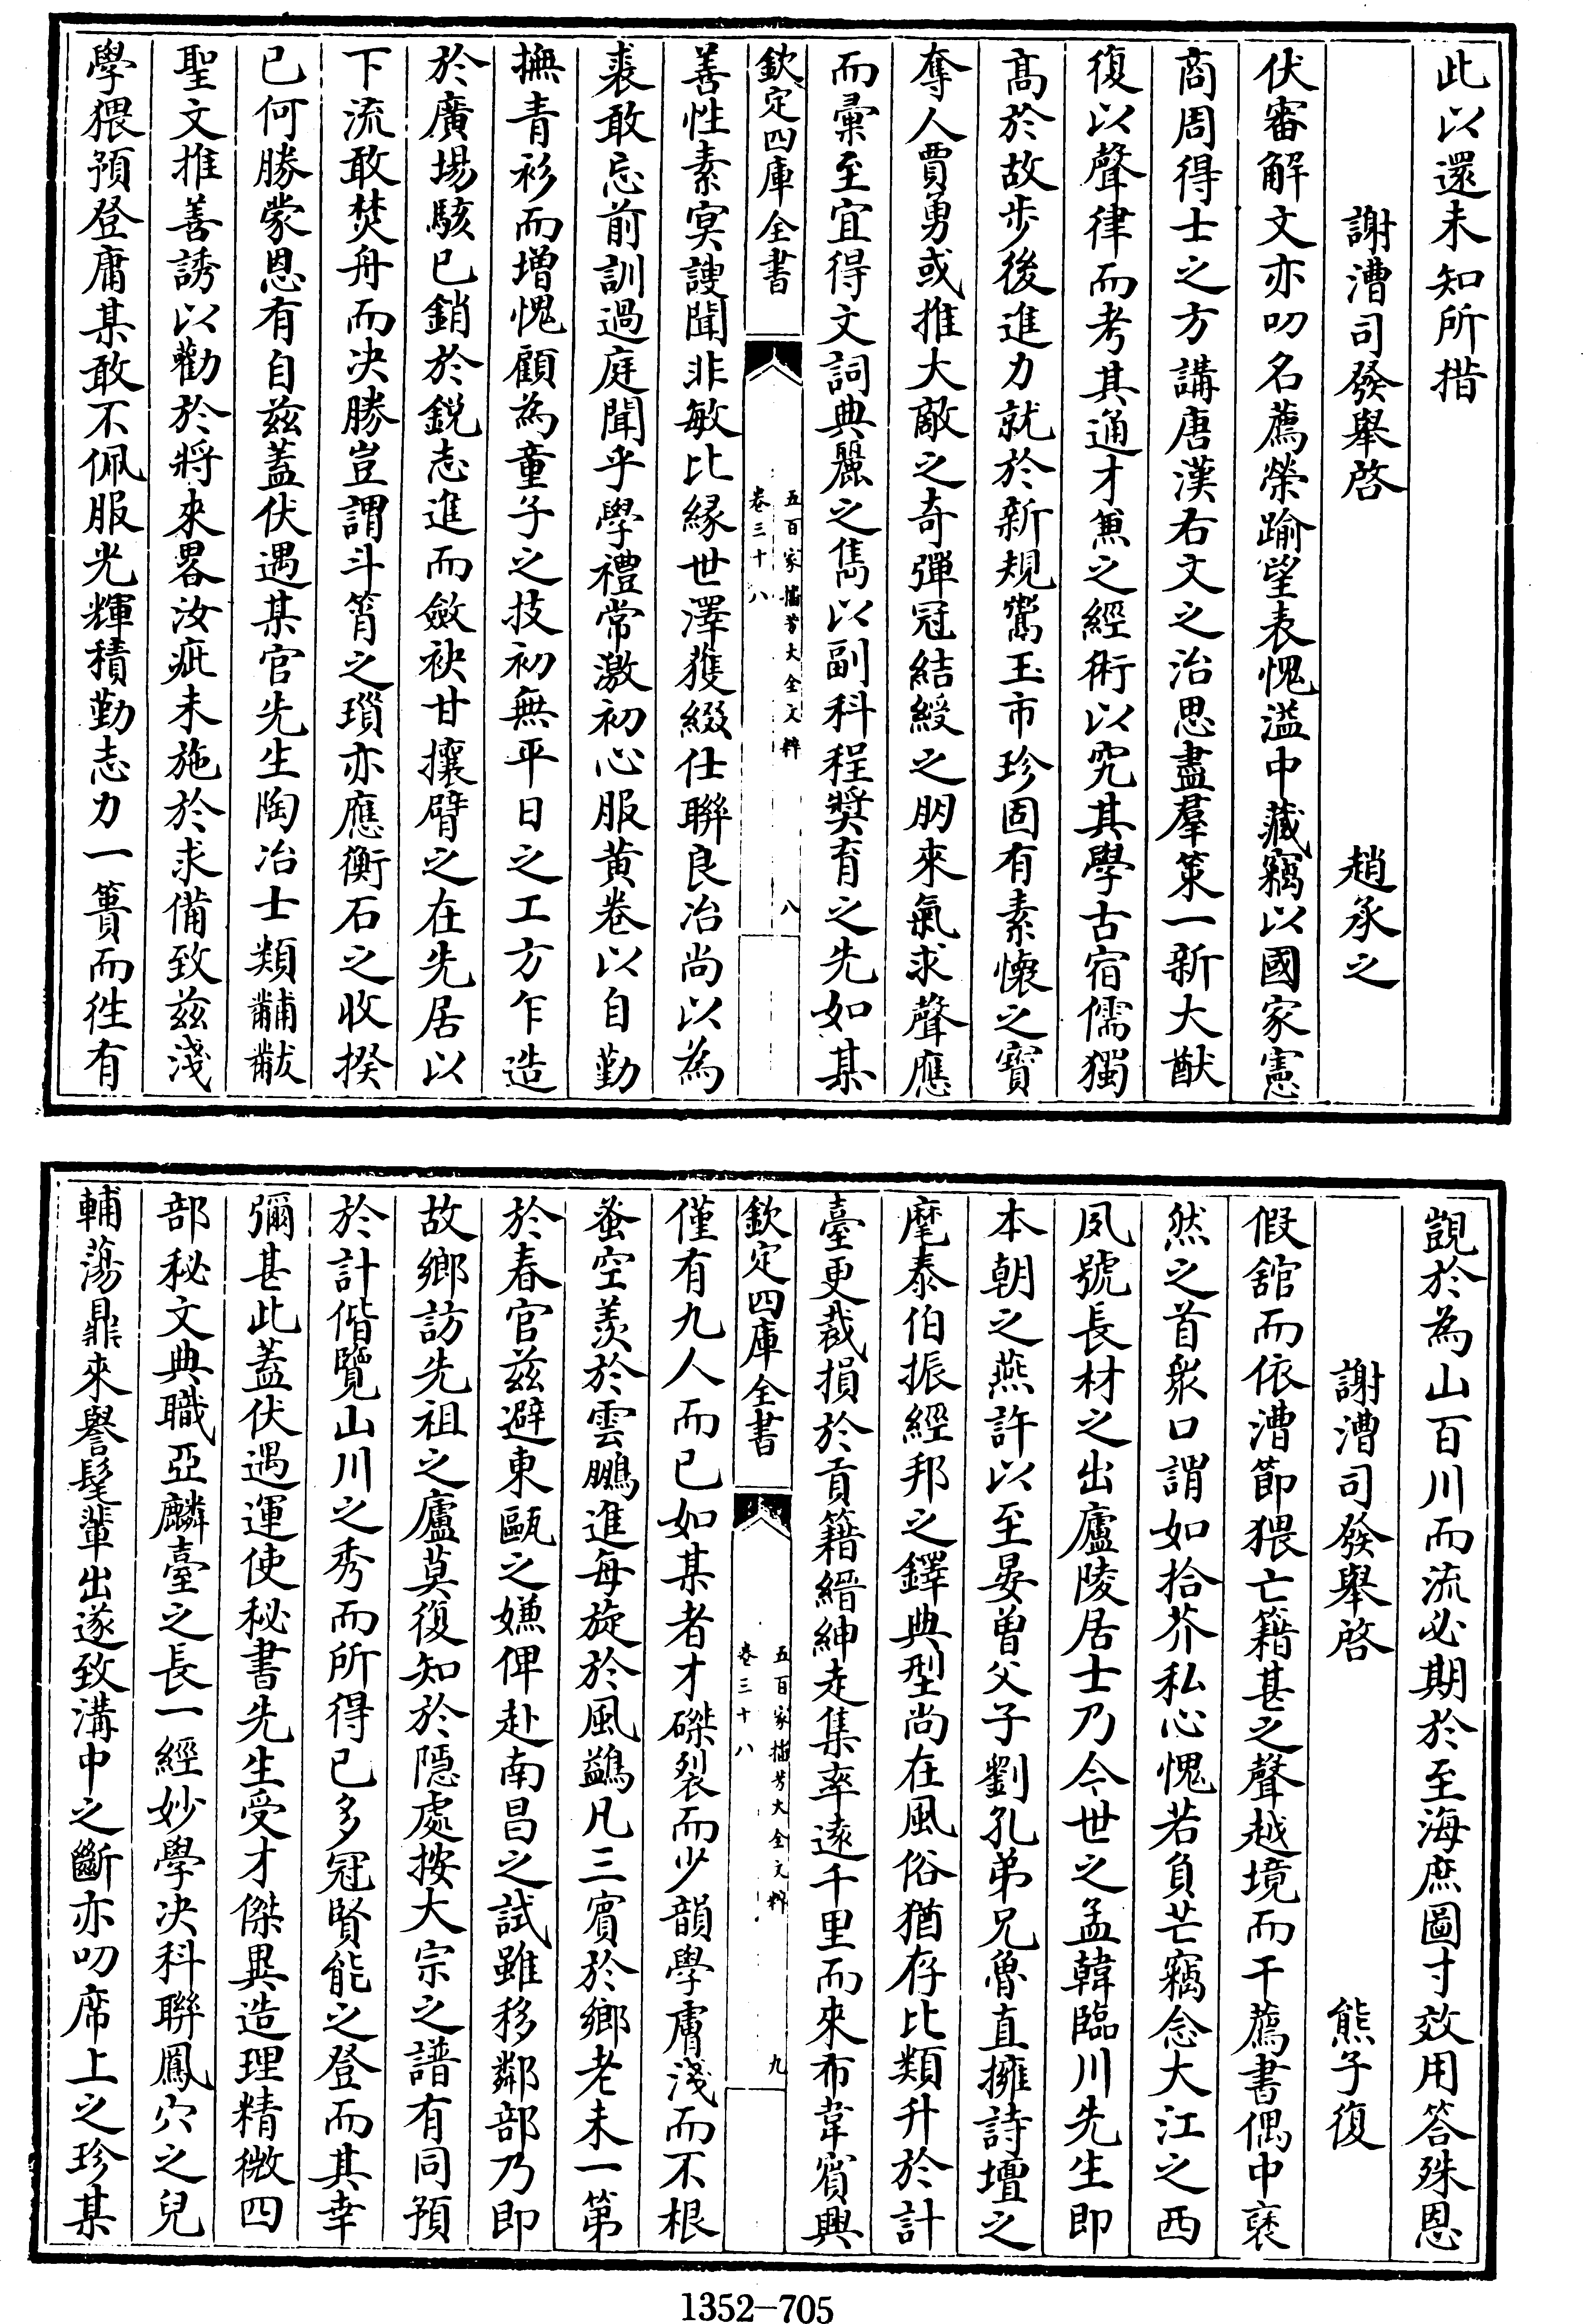 此以還未知所措
謝漕司發舉啓　趙承之
伏審解文亦叨名薦榮踰望表愧溢中藏竊以國家憲
商周得士之方講唐漢右文之治思盡羣策一新大猷
復以聲律而考其通才兼之經術以究其學古宿儒獨
髙於故步後進力就於新規鬻玉市珍固有素懷之寳
奪人賈勇或推大敵之奇彈冠結綬之朋來氣求聲應
而彚至宜得文詞典麗之雋以副科程奬育之先如某
欽定四庫全書
五百家播芳大全文粹
卷三十八
八
善性素冥謏聞非敏比緣世澤獲綴仕聯良冶尚以為
裘敢忘前訓過庭聞乎學禮常激初心服黄卷以自勤
撫青衫而增愧顧為童子之技初無平日之工方乍造
於廣場駭已銷於鋭志進而斂袂甘攘臂之在先居以
下流敢焚舟而决勝豈謂斗筲之瑣亦應衡石之收揆
已何勝蒙恩有自兹蓋伏遇某官先生陶冶士類黼黻
聖文推善誘以勸於將來畧汝疵未施於求備致兹淺
學猥預登庸某敢不佩服光輝積勤志力一簣而徃有
覬於為山百川而流必期於至海庶圖寸效用答殊恩
謝漕司發舉啓　熊子復
假舘而依漕節猥亡籍甚之聲越境而干薦書偶中襃
然之首衆口謂如拾芥私心愧若負芒竊念大江之西
夙號長材之出廬陵居士乃今世之孟韓臨川先生即
本朝之燕許以至晏曽父子劉孔弟兄魯直擁詩壇之
麾泰伯振經邦之鐸典型尚在風俗猶存比類升於計
臺更裁損於貢籍縉紳走集率逺千里而來布韋賓興
欽定四庫全書
五百家播芳大全文粹
卷三十八
九
僅有九人而已如某者才磔裂而少韻學膚淺而不根
蚤空羡於雲鵬進每旋於風鷁凡三賓於鄉老未一第
於春官兹避東甌之嫌俾赴南昌之試雖移鄰部乃即
故鄉訪先祖之廬莫復知於隠處按大宗之譜有同預
於計偕覽山川之秀而所得已多冠賢能之登而其幸
彌甚此蓋伏遇運使秘書先生受才傑異造理精微四
部秘文典職亞麟臺之長一經妙學决科聯鳳穴之兒
輔蕩鼎來譽髦輩出遂致溝中之斷亦叨席上之珍某
1352—705